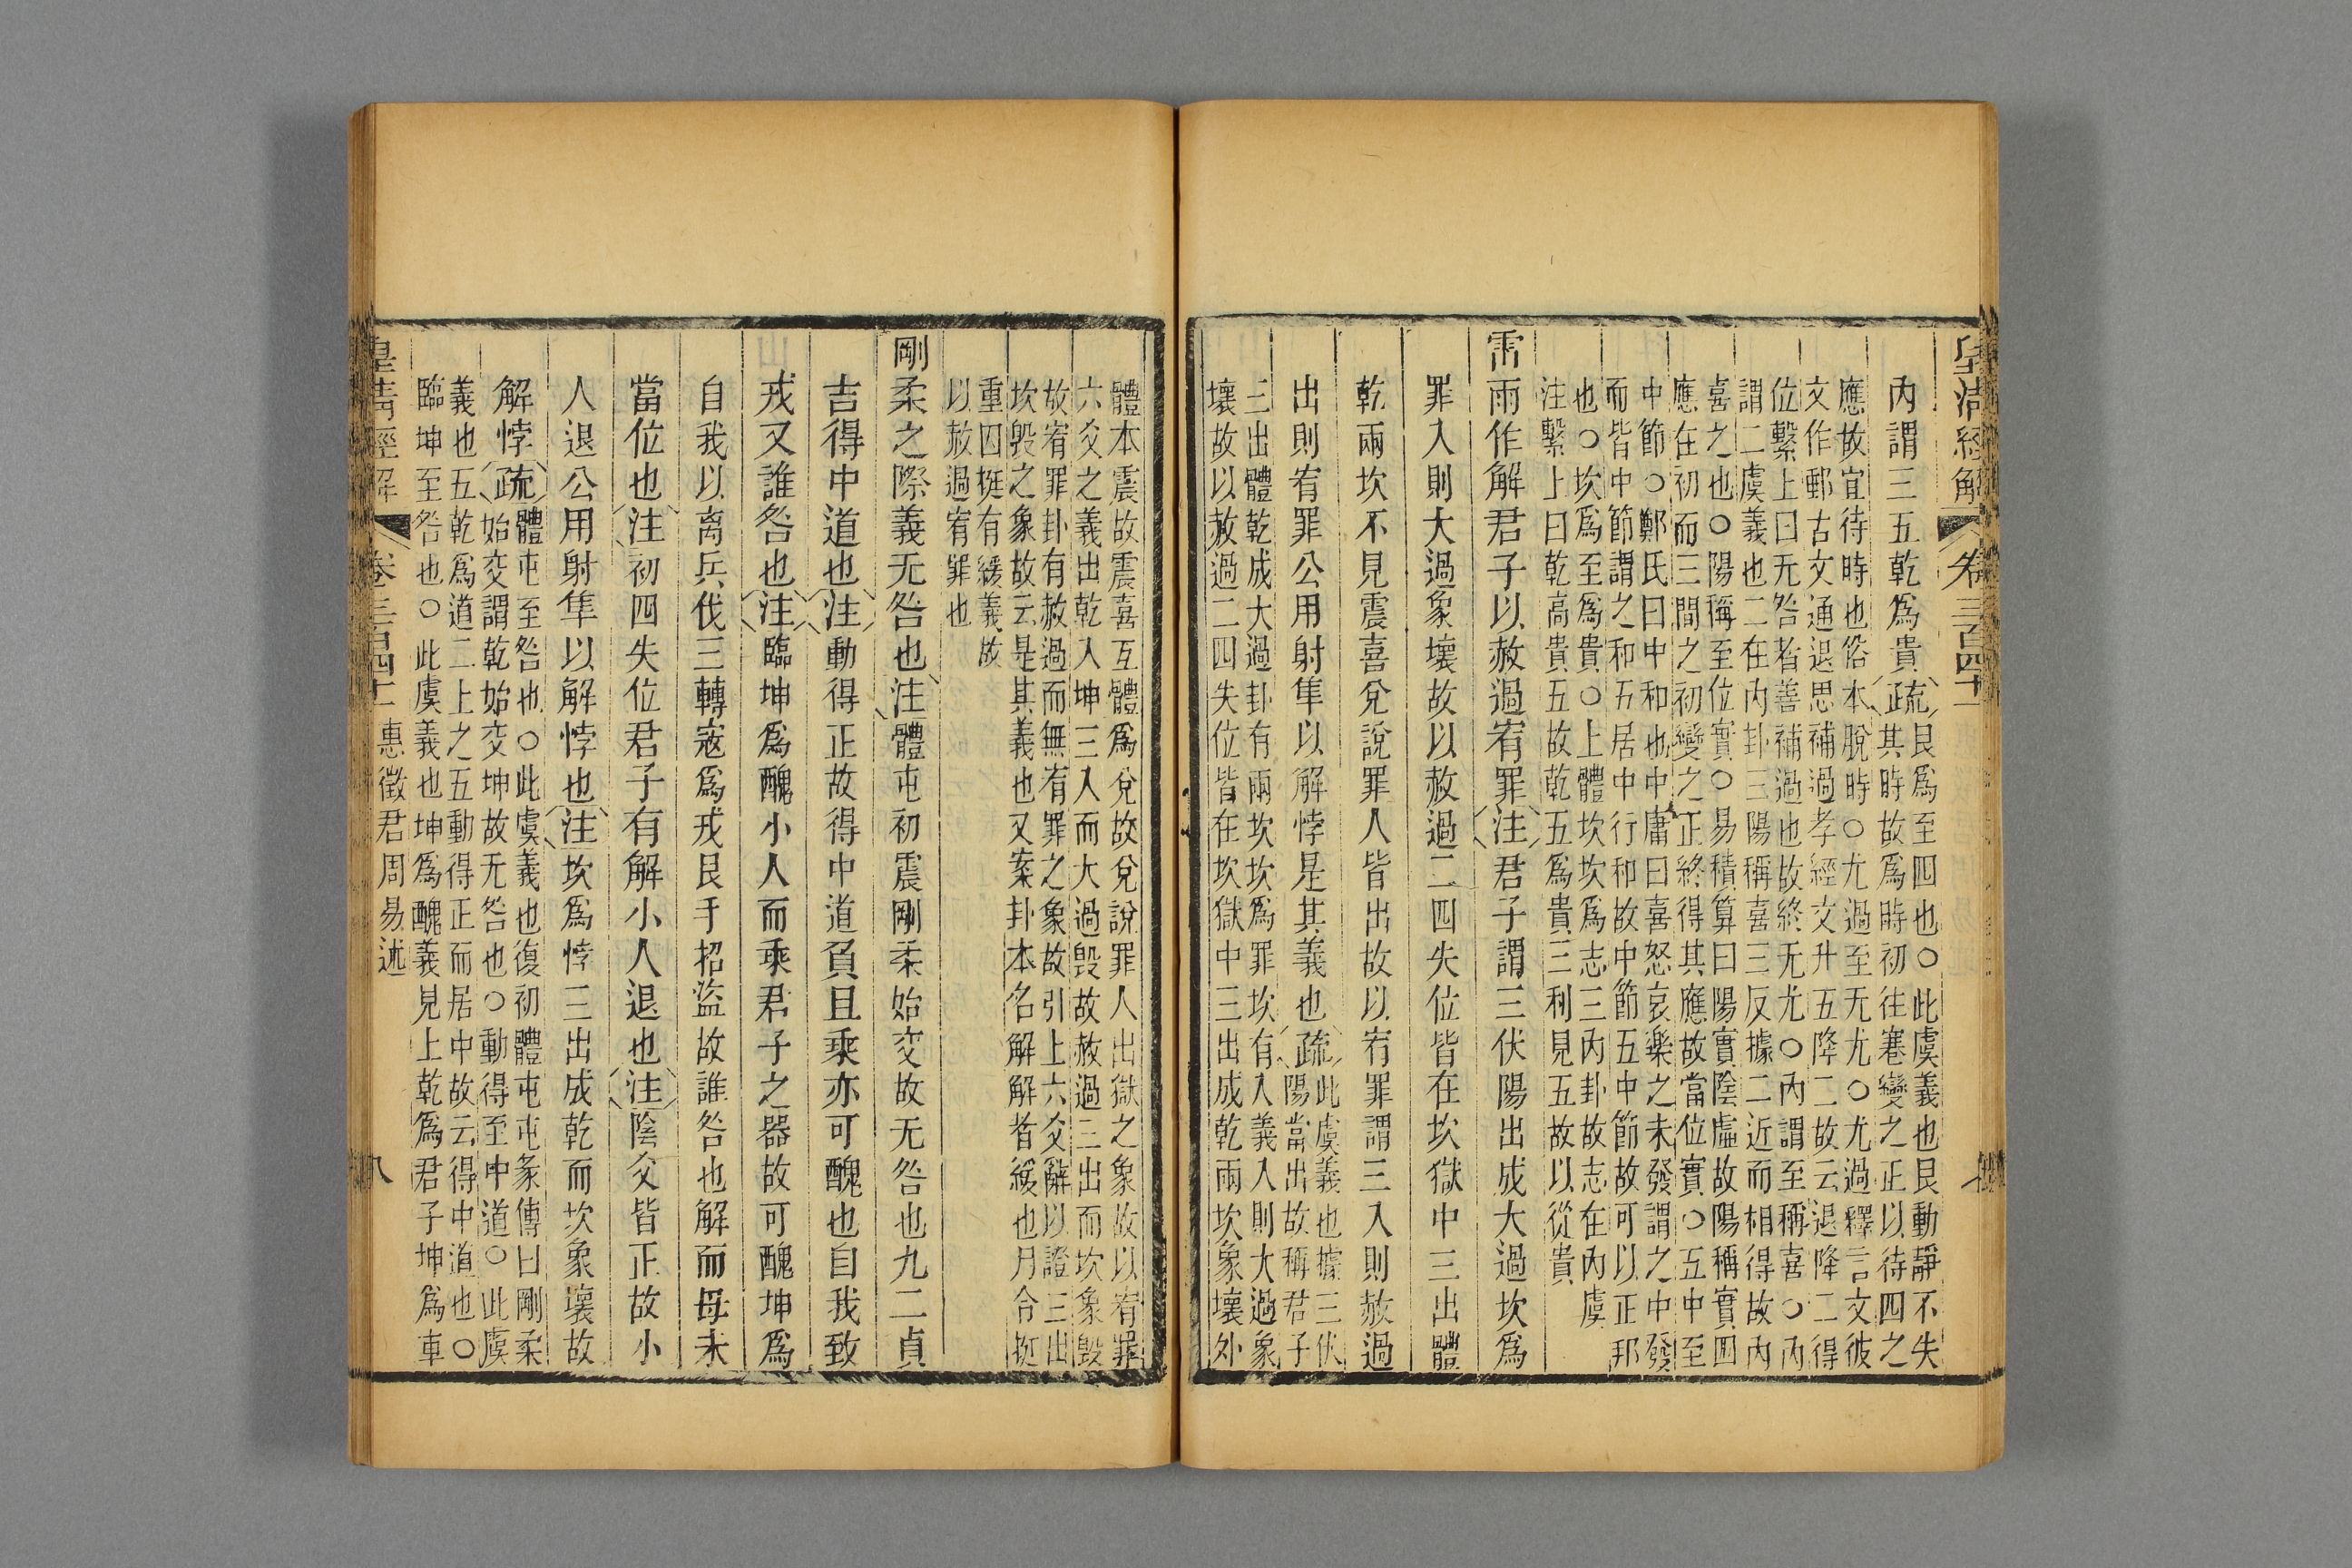 皇清經解
卷三百四十一
內謂三五乾爲貴疏艮爲至四也○此虞義也艮動靜不失
其時故爲時初往蹇變之正以待四之
應故宜待時也俗本脫時○尤過至无尤○尤過釋言文彼
文作郵古文通退思補過孝經文升五降二故云退降二得
位繫上曰无咎者善補過也故終无尤○內謂至稱喜○內
謂二虞義也二在內卦三陽稱喜三反據二近而相得故內
喜之也○陽稱至位實○易積算曰陽實陰虛故陽稱實四
應在初而三間之初變之正終得其應故當位實○五中至
中節○鄭氏曰中和也中庸曰喜怒哀樂之未發謂之中發
而皆中節謂之和五居中行和故中節五中節故可以正邦
也○坎爲至爲貴○上體坎坎爲志三內卦故志在內虞
注繫上曰乾高貴五故乾五爲貴三利見五故以從貴
雷雨作解君子以赦過宥罪注君子謂三伏陽出成大過坎爲
罪入則大過象壞故以赦過二四失位皆在坎獄中三出體
乾兩坎不見震喜兌說罪人皆出故以宥罪謂三入則赦過
出則宥罪公用射隼以解悖是其義也疏此虞義也據三伏
陽當出故稱君子
三出體乾成大過卦有兩坎坎爲罪坎有入義入則大過象
壞故以赦過二四失位皆在坎獄中三出成乾兩坎象壞外
體本震故震喜互體爲兌故兌說罪人出獄之象故以宥罪
六爻之義出乾入坤三入而大過毀故赦過三出而坎象毀
故宥罪卦有赦過而無宥罪之象故引上六爻辭以證三出
坎毀之象故云是其義也又案卦本名解解者緩也月令挺
重囚挺有緩義故
以赦過宥罪也
剛柔之際義无咎也注體屯初震剛柔始交故无咎也九二貞
吉得中道也注動得正故得中道負且乘亦可醜也自我致
戎又誰咎也注臨坤爲醜小人而乘君子之器故可醜坤爲
自我以离兵伐三轉寇爲戎艮手招盜故誰咎也解而毋未
當位也注初四失位君子有解小人退也注陰爻皆正故小
人退公用射隼以解悖也注坎爲悖三出成乾而坎象壞故
解悖疏體屯至咎也○此虞義也復初體屯屯彖傳曰剛柔
始交謂乾始交坤故无咎也○動得至中道○此虞
義也五乾爲道二上之五動得正而居中故云得中道也○
臨坤至咎也○此虞義也坤爲醜義見上乾爲君子坤爲車
皇清經解
卷三百四十一
惠徵君周易述
八